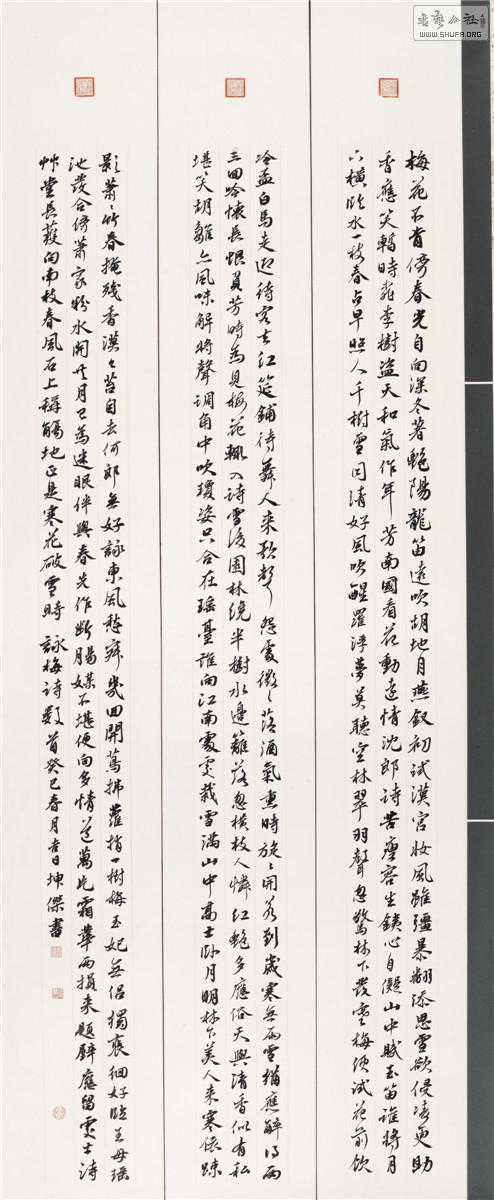 梅花不肯傍春光自向深冬著艷陽龍笛遠吹胡地月燕釵初試漢宮妝風雖彊暴翻添思雪欲侵凌更助
香應笑暫時桃李樹盜天和氣作年芳南國看花動遠情沈郎詩苦瘦容生鐵心自儗山中賦玉笛誰將月
下橫臨水一枝春占早照人千樹雪同清好風吹醒羅浮夢莫聽空林翠羽聲忽驚林下發寒梅便試花前飲
冷盃白馬走迎詩客去紅筵鋪待舞人來歌聲怨處微微落酒氣熏時旋旋開若到歲寒無雨雪猶應醉得兩
三回吟懷長恨負芳時為見梅花輒入詩雪後園林纔半樹水邊籬落忽橫枝人憐紅艷多應俗天與清香似有私
堪笑胡雛亦風味解將聲調角中吹瓊姿只合在瑤臺誰向江南處處栽雪滿山中高士臥月明林下美人來寒依疎
影蕭蕭竹春掩殘香漠漠苔自去何郎無好詠東風愁寂幾回開蔦拂蘿捎一樹梅玉妃無侶獨裵徊好臨王母瑤
池發合傍蕭家粉水開共月已為迷眼伴與春先作斷腸媒不堪便向多情道萬片霜華雨損來題辟應留處士詩
艸堂長護向南枝春風石上稱觴地正是寒花破雪時 詠梅詩數首癸巳春月吉日坤傑書
書藝公社
WWW.SHUFA.ORG